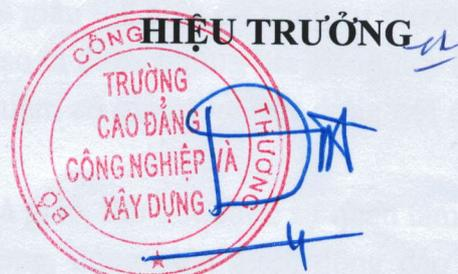 HIỆU TRƯỞNG
BỘ CÔNG THƯƠNG
TRƯỜNG
CAO ĐẲNG
CÔNG NGHIỆP VÀ
XÂY DỰNG